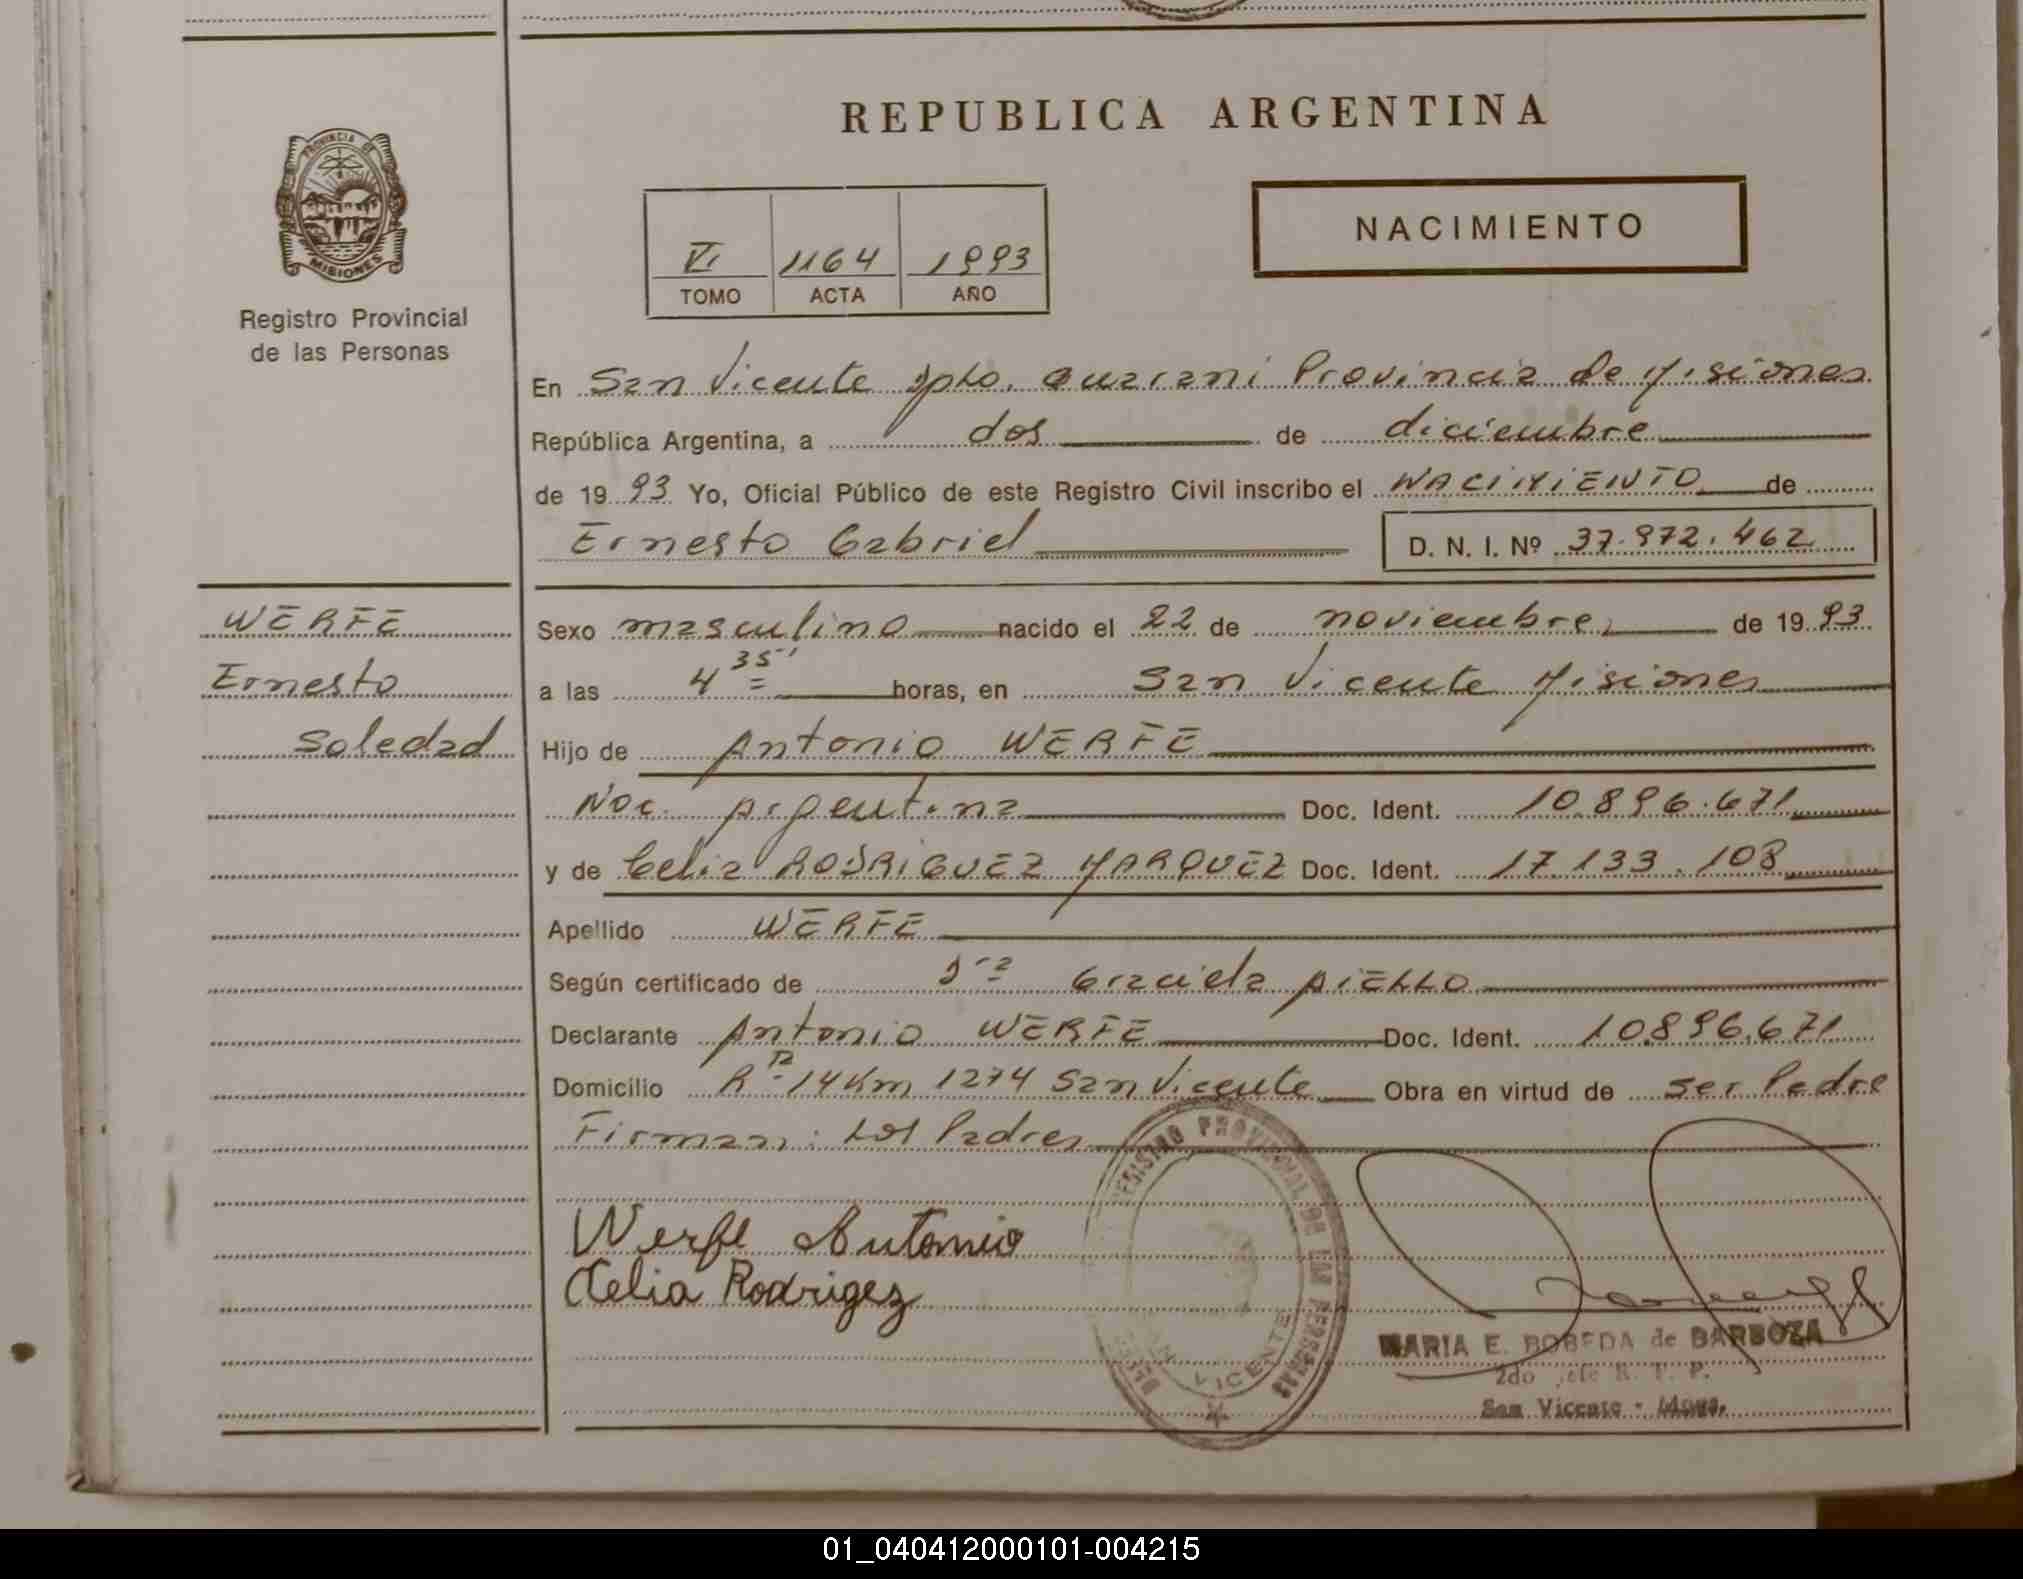 REPUBLICA ARGENTINA
PROVINCIA DE
MISIONES
Registro Provincial
de las Personas
VI 1164 1993
TOMO ACTA AÑO
NACIMIENTO
En San Vicente Dpto. Guarani Provincia de Misiones
República Argentina, a dos de diciembre
de 1993 Yo, Oficial Público de este Registro Civil inscribo el NACIMIENTO de
Ernesto Gabriel D. N. I. Nº 37.972.462
WERFE
Ernesto
Soledad
Sexo masculino nacido el 22 de noviembre, de 1993
a las 4 35' horas, en San Vicente Misiones
Hijo de Antonio WERFE
Nac. Argentina Doc. Ident. 10.896.671
y de Celia RODRIGUEZ MARQUEZ Doc. Ident. 17.133.108
Apellido WERFE
Según certificado de Dra Graciela AIELLO
Declarante Antonio WERFE Doc. Ident. 10.896.671
Domicilio Rta 14 Km 1274 San Vicente Obra en virtud de ser Padre
Firman: Los Padres
Werfe Antonio
Celia Rodrigez
REGISTRO PROVINCIAL DE LAS PERSONAS
SAN VICENTE
MARIA E. BOBEDA de BARBOZA
2do Jefe R. P. P.
San Vicente - Mnes.
01_040412000101-004215